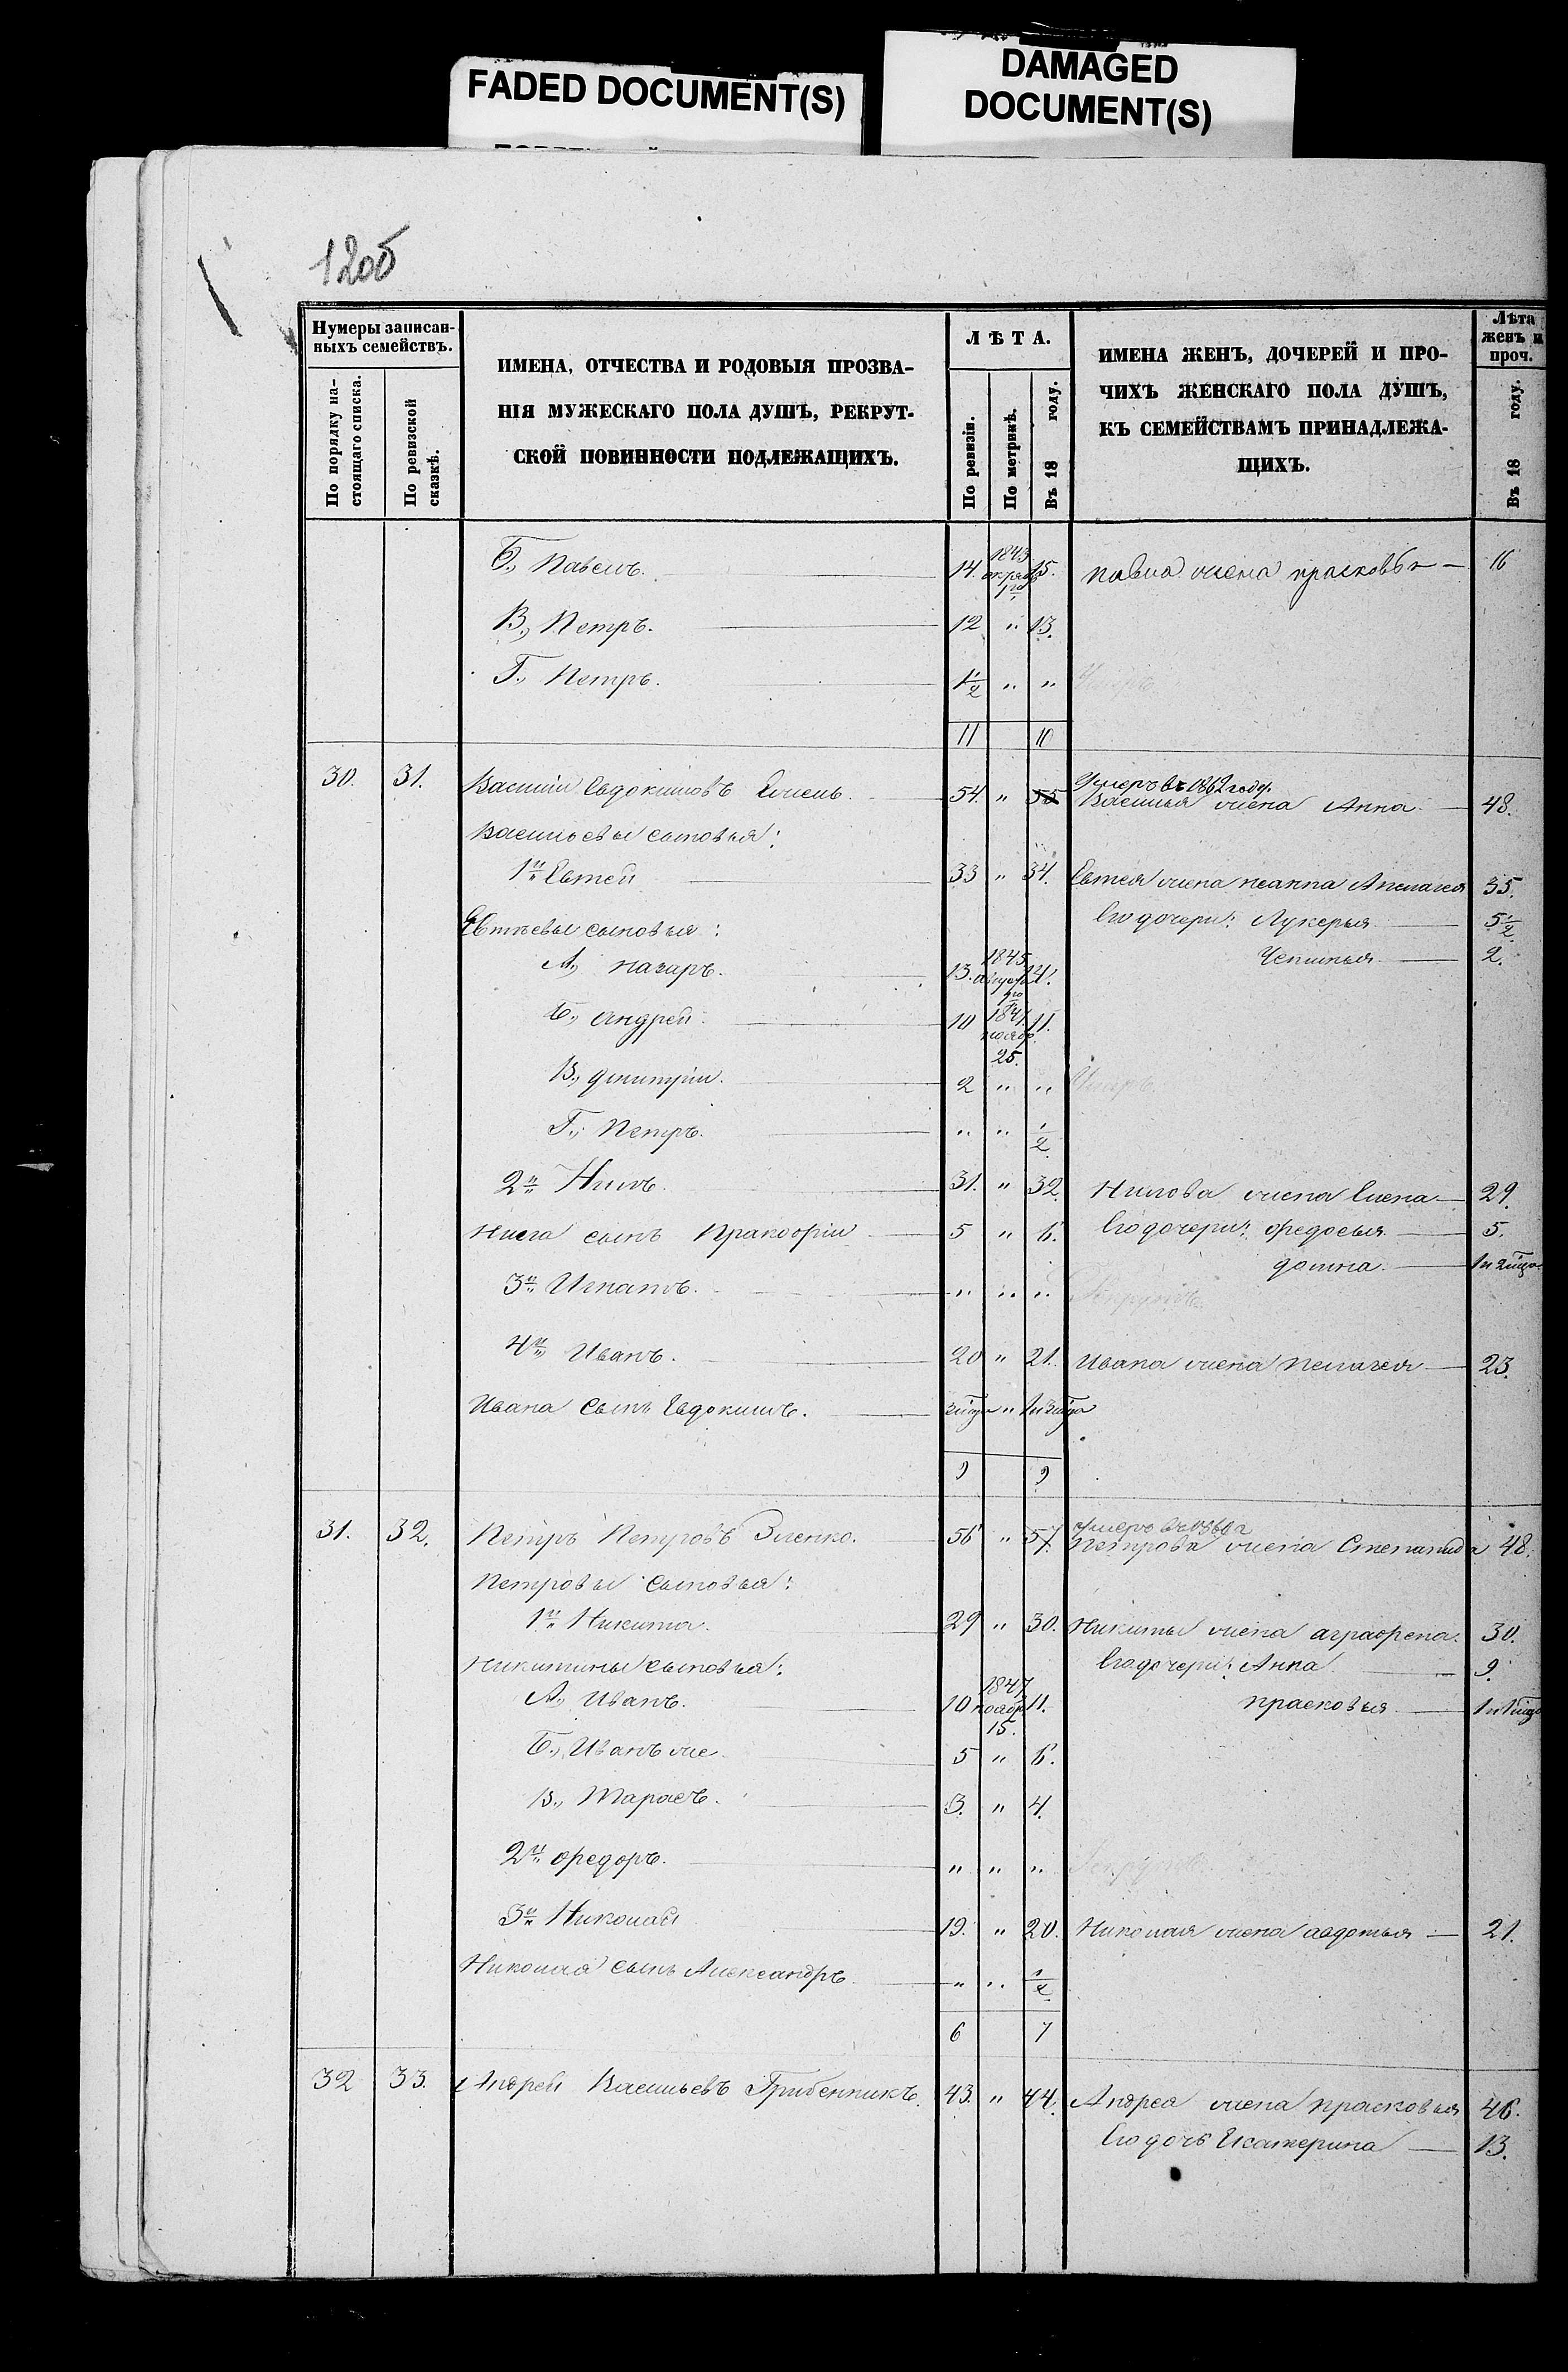 FADED DOCUMENT(S)
DAMAGED
DOCUMENT(S)
120б
Нумеры записан-
ныхъ семействъ.
По порядку на-
стоящаго списка.
По ревизской
сказкѣ.
ИМЕНА, ОТЧЕСТВА И РОДОВЫЯ ПРОЗВА-
НІЯ МУЖЕСКАГО ПОЛА ДУШЪ, РЕКРУТ-
СКОЙ ПОВИННОСТИ ПОДЛЕЖАЩИХЪ.
ЛѢТА.
По ревизіи.
По метрикѣ.
Въ 18 году.
ИМЕНА ЖЕНЪ, ДОЧЕРЕЙ И ПРО-
ЧИХЪ ЖЕНСКАГО ПОЛА ДУШЪ,
КЪ СЕМЕЙСТВАМЪ ПРИНАДЛЕЖА-
ЩИХЪ.
Лѣта
женъ и
проч.
Въ 18 году.
Б., Павелъ. 14. 1843 15. Павла жена Прасковья 16
В., Петръ. 12 " 13.
Г., Петръ. 1/2 " " Умеръ
11 10
30. 31. Василій Евдокимовъ 54. " 55 Умеръ въ 1862 году.
Василья жена Анна 48.
Васильевы сыновья:
1й Евтей 33 " 34. Евтея жена 35.
Евтѣевы сыновья: Его дочери: Лукерья 5 1/2
А., Назаръ. 13. 1845 августа 14. 2.
Б., Андрей. 10 1847 ноябр. 25. 11.
В., Дмитрій. 2 " " Умеръ
Г., Петръ. " " 1/2
2й Нилъ. 31. " 32. Нилова жена Елена 29.
Нила сынъ Пракофій 5 " 6. Его дочери: Федосья 5.
Домна.
3й Игнатъ. " " " Рекрутъ.
4й Иванъ. 20 " 21. Ивана жена Пелагея 23.
Ивана сынъ Евдокимъ.
9 9
31. 32. Петръ Петровъ Зленко. 56 " 57. Умеръ въ
Петрова жена Степанида 48.
Петровы сыновья:
1й Никита. 29 " 30. Никиты жена Аграфена. 30.
Никитины сыновья: Его дочери: Анна 9.
А., Иванъ. 10 1847 ноябр 15. 11. Прасковья
Б., Иванъ же 5 " 6.
В., Тарасъ. 3. " 4.
2й Федоръ. " " " Рекрутъ.
3й Николай 19. " 20. Николая жена Авдотья 21.
Николая сынъ Александръ " " 1/2
6 7
32 33. Андрей Васильевъ Грибенникъ. 43. " 44. Андрея жена Прасковья 46.
Его дочь Екатерина 13.